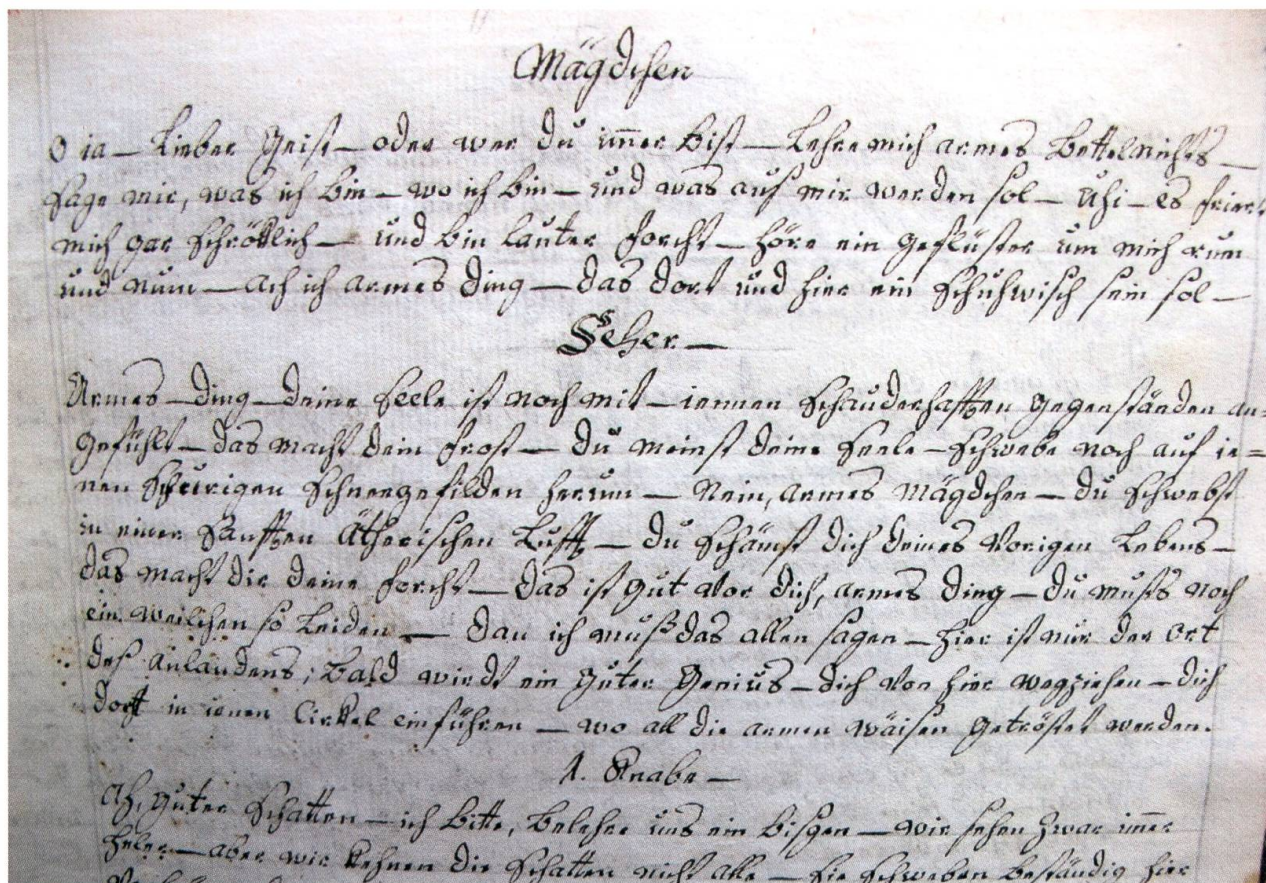 Mägdchen
O ja — lieber Geist — oder wer du im̄er bist — lehre mich armes Bettelmensch —
sage mir, was ich bin — wo ich bin — und was aus mir werden sol — Uhi — es friert
mich gar schröklich — und bin lauter forcht — höre ein geflüster um mich rum
und num — ach ich armes ding — das dort und hier ein Schuhwisch sein sol —
Seher —
Armes — ding — deine Seele ist noch mit — iennen Schauderhafften gegenständen an=
gefühlt — das macht dein frost — du meinst deine Seele — schwebe noch auf ie=
nen Schneegefilden herum — Nein, armes Mägdchen — du schwebst
in einer Sanfften Ätherischen Lufft — du schämst dich deines vorigen Lebens —
das macht dir deine forcht — das ist gut vor dich, armes ding — du must noch
ein weilchen so leiden — dan ich muß das allen sagen — hier ist nur der ort
des anlandens; bald wirdt ein guter Genius — dich von hier wegziehen — dich
dort in ienen Cirkel einführen — wo all die armen wäisen getröstet werden.
1. Knabe —
Ah, guter Schatten — ich bitte, belehre uns ein bisgen — wir sehen zwar im̄er
heler — aber wir kehnen die Schatten nicht alle — sie schweben beständig hier